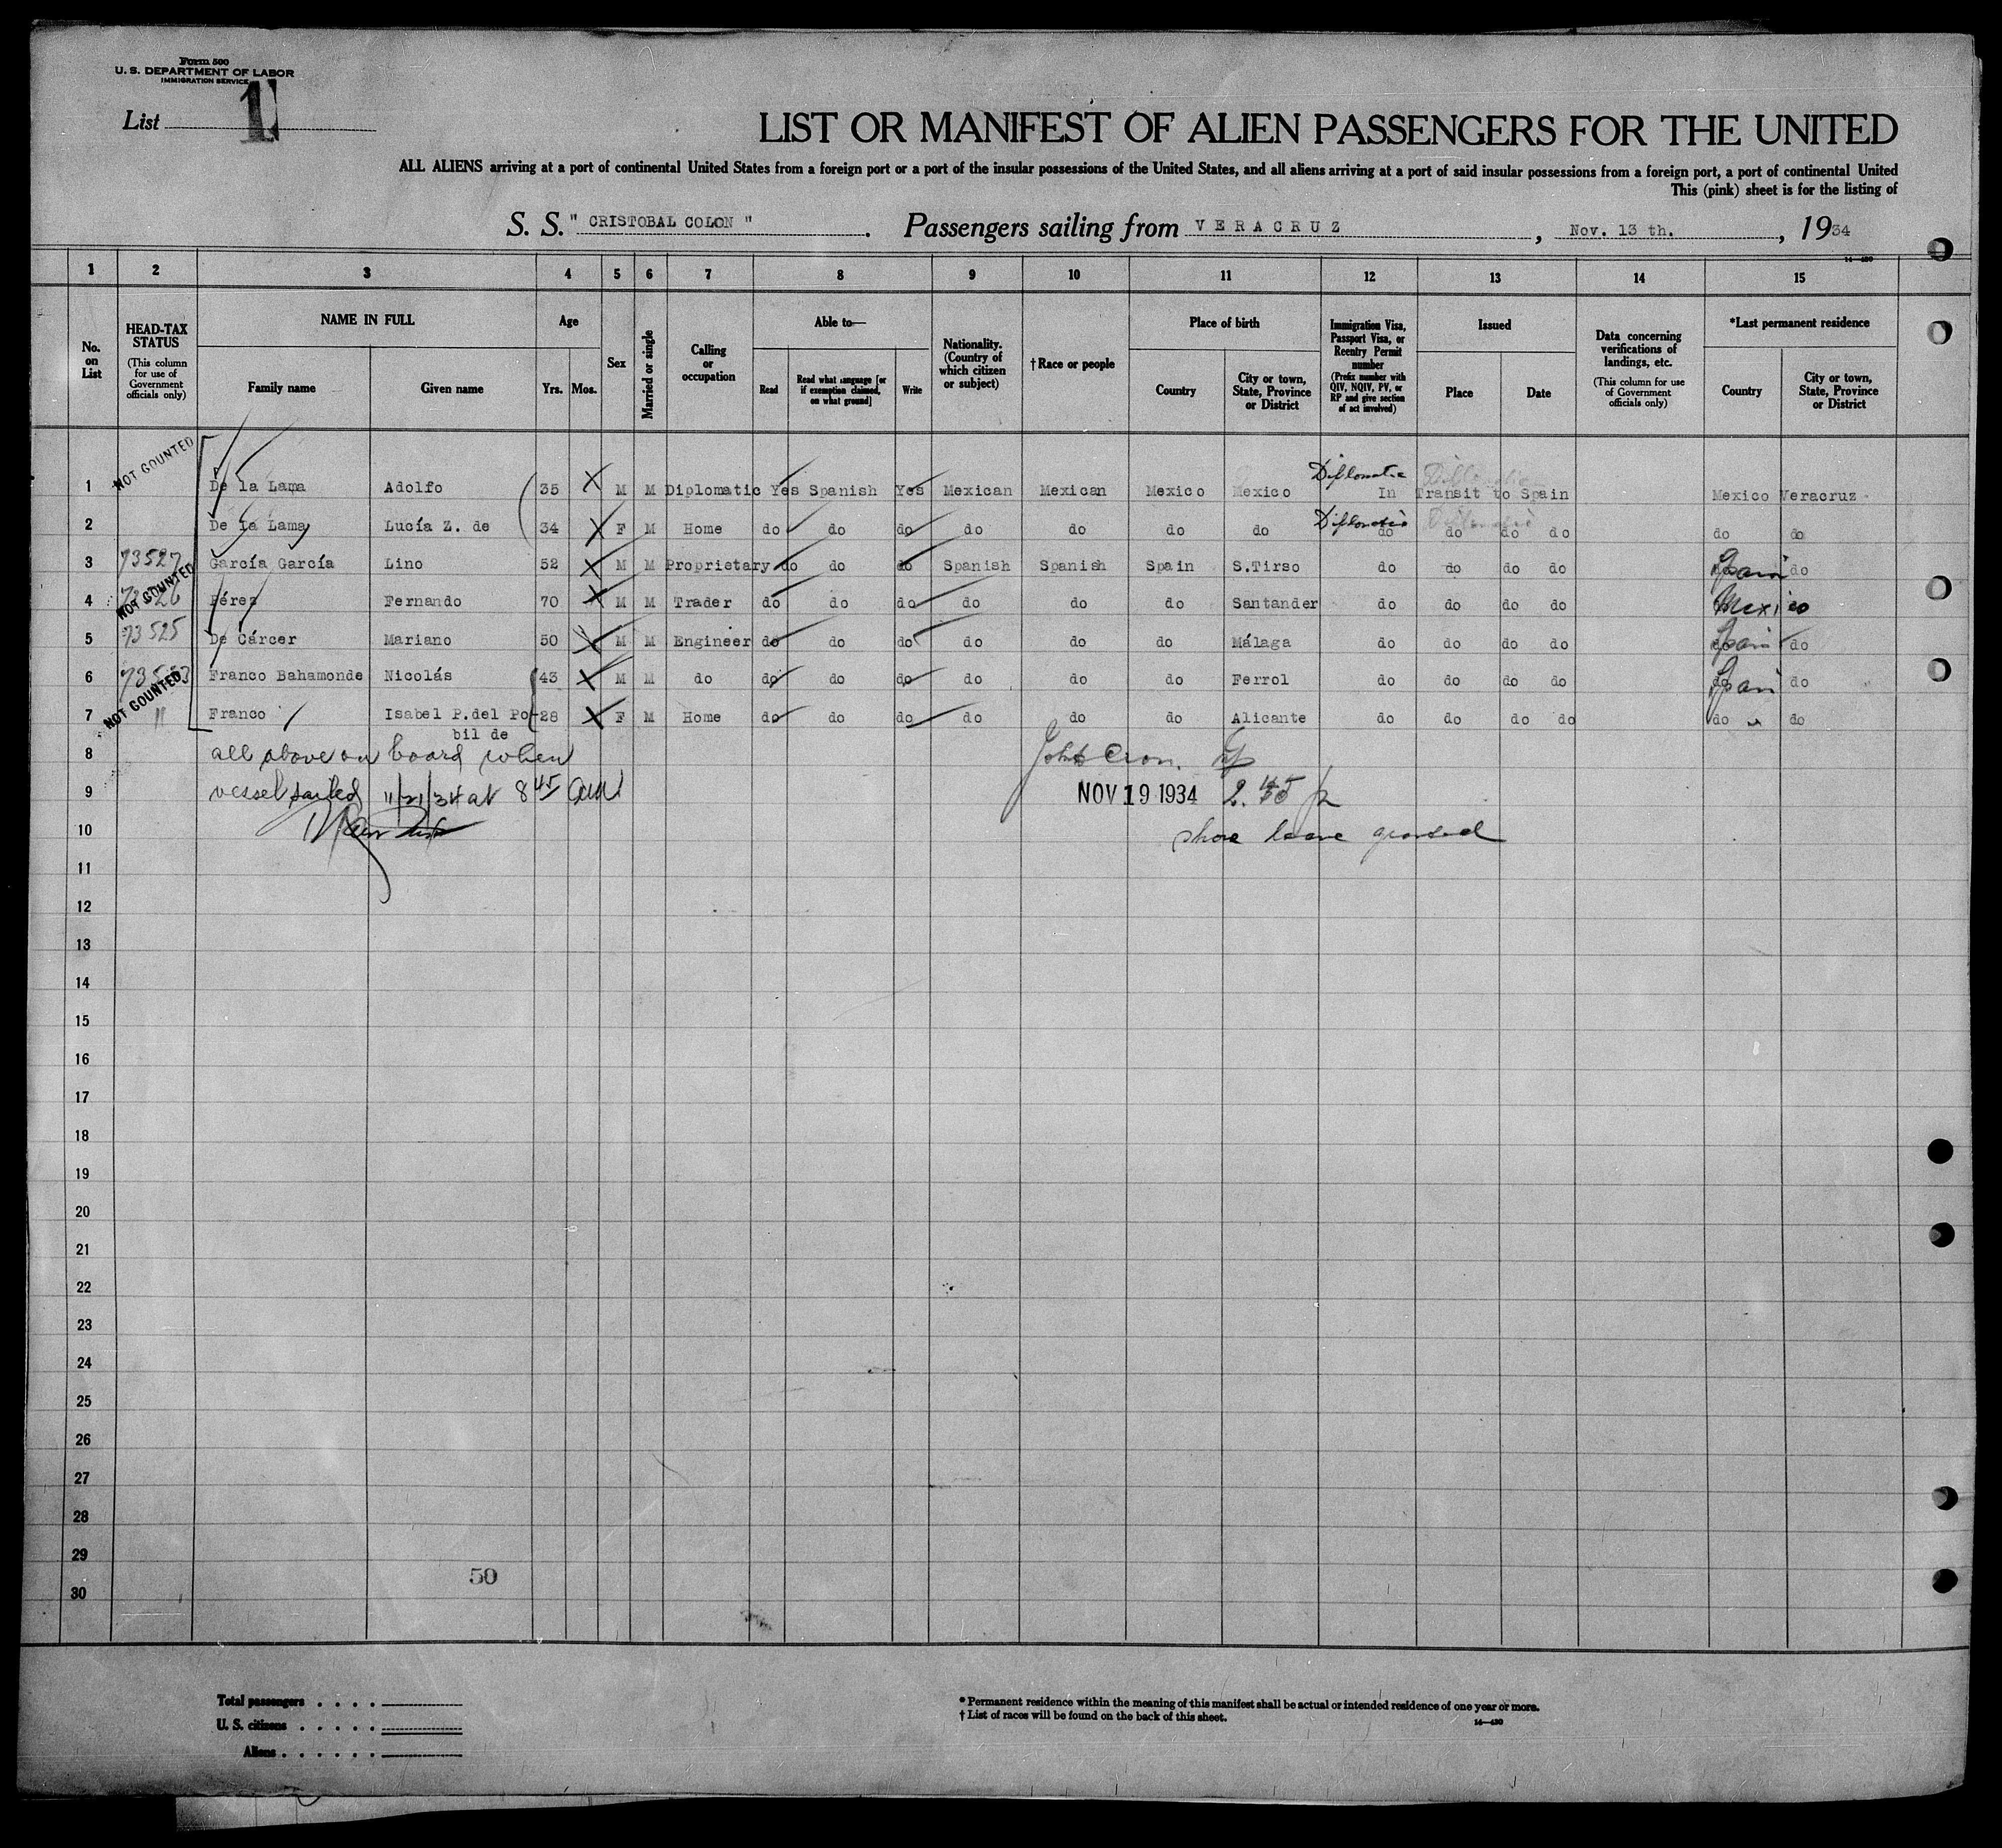 Form 500
U. S. DEPARTMENT OF LABOR
IMMIGRATION SERVICE
List 1
LIST OR MANIFEST OF ALIEN PASSENGERS FOR THE UNITED
ALL ALIENS arriving at a port of continental United States from a foreign port or a port of the insular possessions of the United States, and all aliens arriving at a port of said insular possessions from a foreign port, a port of continental United
This (pink) sheet is for the listing of
S. S. " CRISTOBAL COLON ". Passengers sailing from VERACRUZ, Nov. 13 th., 1934
14—430
1 2 3 4 5 6 7 8 9 10 11 12 13 14 15
No. on List
HEAD-TAX STATUS
(This column for use of Government officials only)
NAME IN FULL
Family name Given name
Age
Yrs. Mos.
Sex
Married or single
Calling or occupation
Able to—
Read
Read what language [or if exemption claimed, on what ground]
Write
Nationality. (Country of which citizen or subject)
†Race or people
Place of birth
Country
City or town, State, Province or District
Immigration Visa, Passport Visa, or Reentry Permit number
(Prefix number with QIV, NQIV, PV, or RP and give section of act involved)
Issued
Place Date
Data concerning verifications of landings, etc.
(This column for use of Government officials only)
*Last permanent residence
Country
City or town, State, Province or District
NOT COUNTED
Diplomatic
1 De la Lama Adolfo 35 M M Diplomatic Yes Spanish Yes Mexican Mexican Mexico Mexico In Transit to Spain Mexico Veracruz
Diplomatic
2 De la Lama Lucía Z. de 34 F M Home do do do do do do do do do do do do do
3 73527 García García Lino 52 M M Proprietary do do do Spanish Spanish Spain S.Tirso do do do do Spain do
NOT COUNTED
4 73526 Pérez Fernando 70 M M Trader do do do do do do Santander do do do do Mexico
5 73525 De Cárcer Mariano 50 M M Engineer do do do do do do Málaga do do do do Spain do
6 Franco Bahamonde Nicolás 43 M M do do do do do do do Ferrol do do do do Spain do
NOT COUNTED
7 " Franco Isabel P.del Po- 28 F M Home do do do do do do Alicante do do do do do " do
bil de
8 all above on board when
John Cron.
9 vessel sailed 11/21/34 at 8 45 AM
NOV 19 1934 2.
10
shore leave granted
11
12
13
14
15
16
17
18
19
20
21
22
23
24
25
26
27
28
29
50
30
Total passengers . . . .
U. S. citizens . . . . .
Aliens . . . . . .
* Permanent residence within the meaning of this manifest shall be actual or intended residence of one year or more.
† List of races will be found on the back of this sheet.
14—430